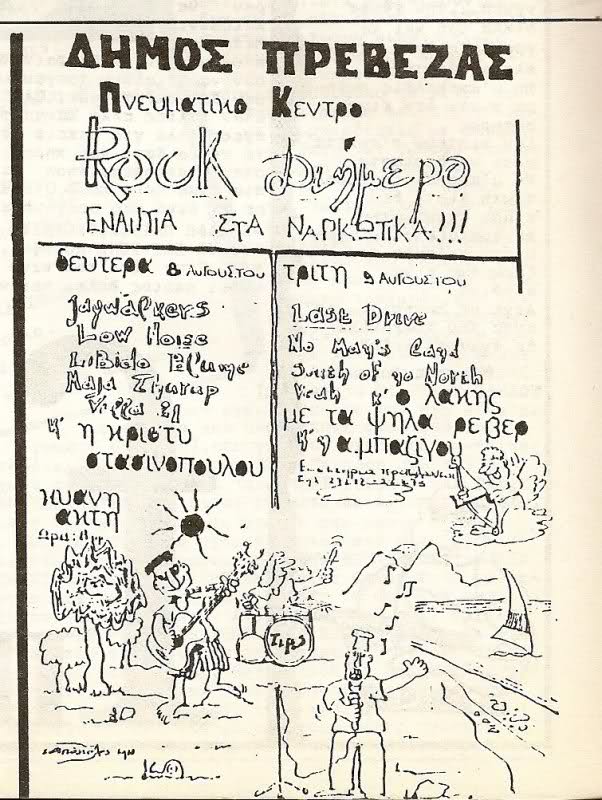 ΔΗΜΟΣ ΠΡΕΒΕΖΑΣ
Πνευματικο Κεντρο
Rock Διήμερο
ΕΝΑΝΤΙΑ ΣΤΑ ΝαΡΚΩΤΙΚΑ!!!
δευτερα 8 Αυγουστου
Jaywalkers
Low Noise
Libido Blume
Μαγια
Villa 21
κ' η κριστυ
στασινοπουλου
τριτη 9 Αυγουστου
Last Drive
No Man's Land
South of no North
Yeah κ' ο λακης
με τα ψηλα ρεβερ
κ' γ α.μπαζιγου
κυανη
ακτη
Ωρα: